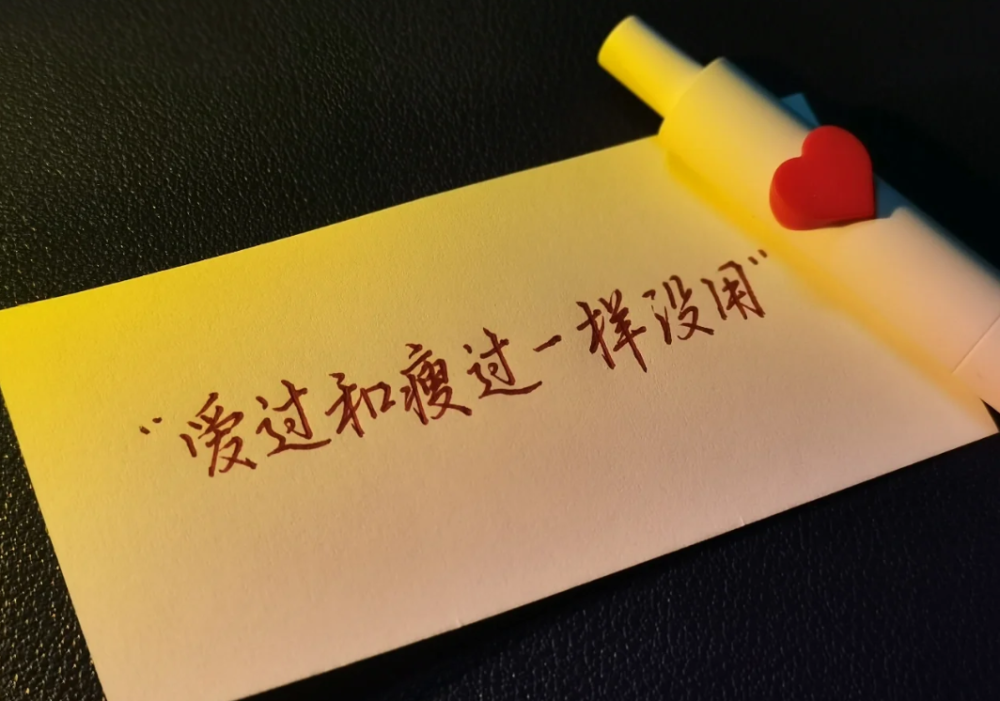 “爱过和瘦过一样没用”